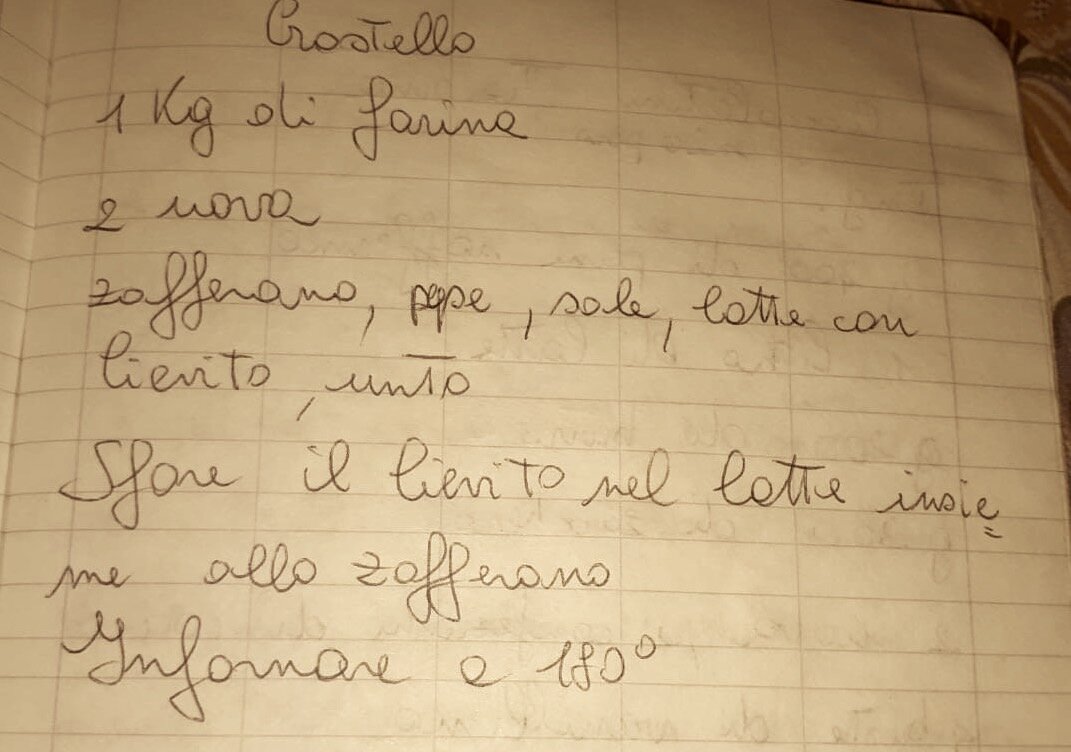 Crostello
1 Kg di farina
2 uova
zafferano, pepe, sale, latte con
lievito, unto
Sfare il lievito nel latte insie=
me allo zafferano
Infornare a 180°